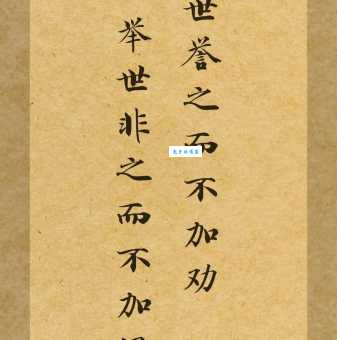 世誉之而不加劝
举世非之而不加